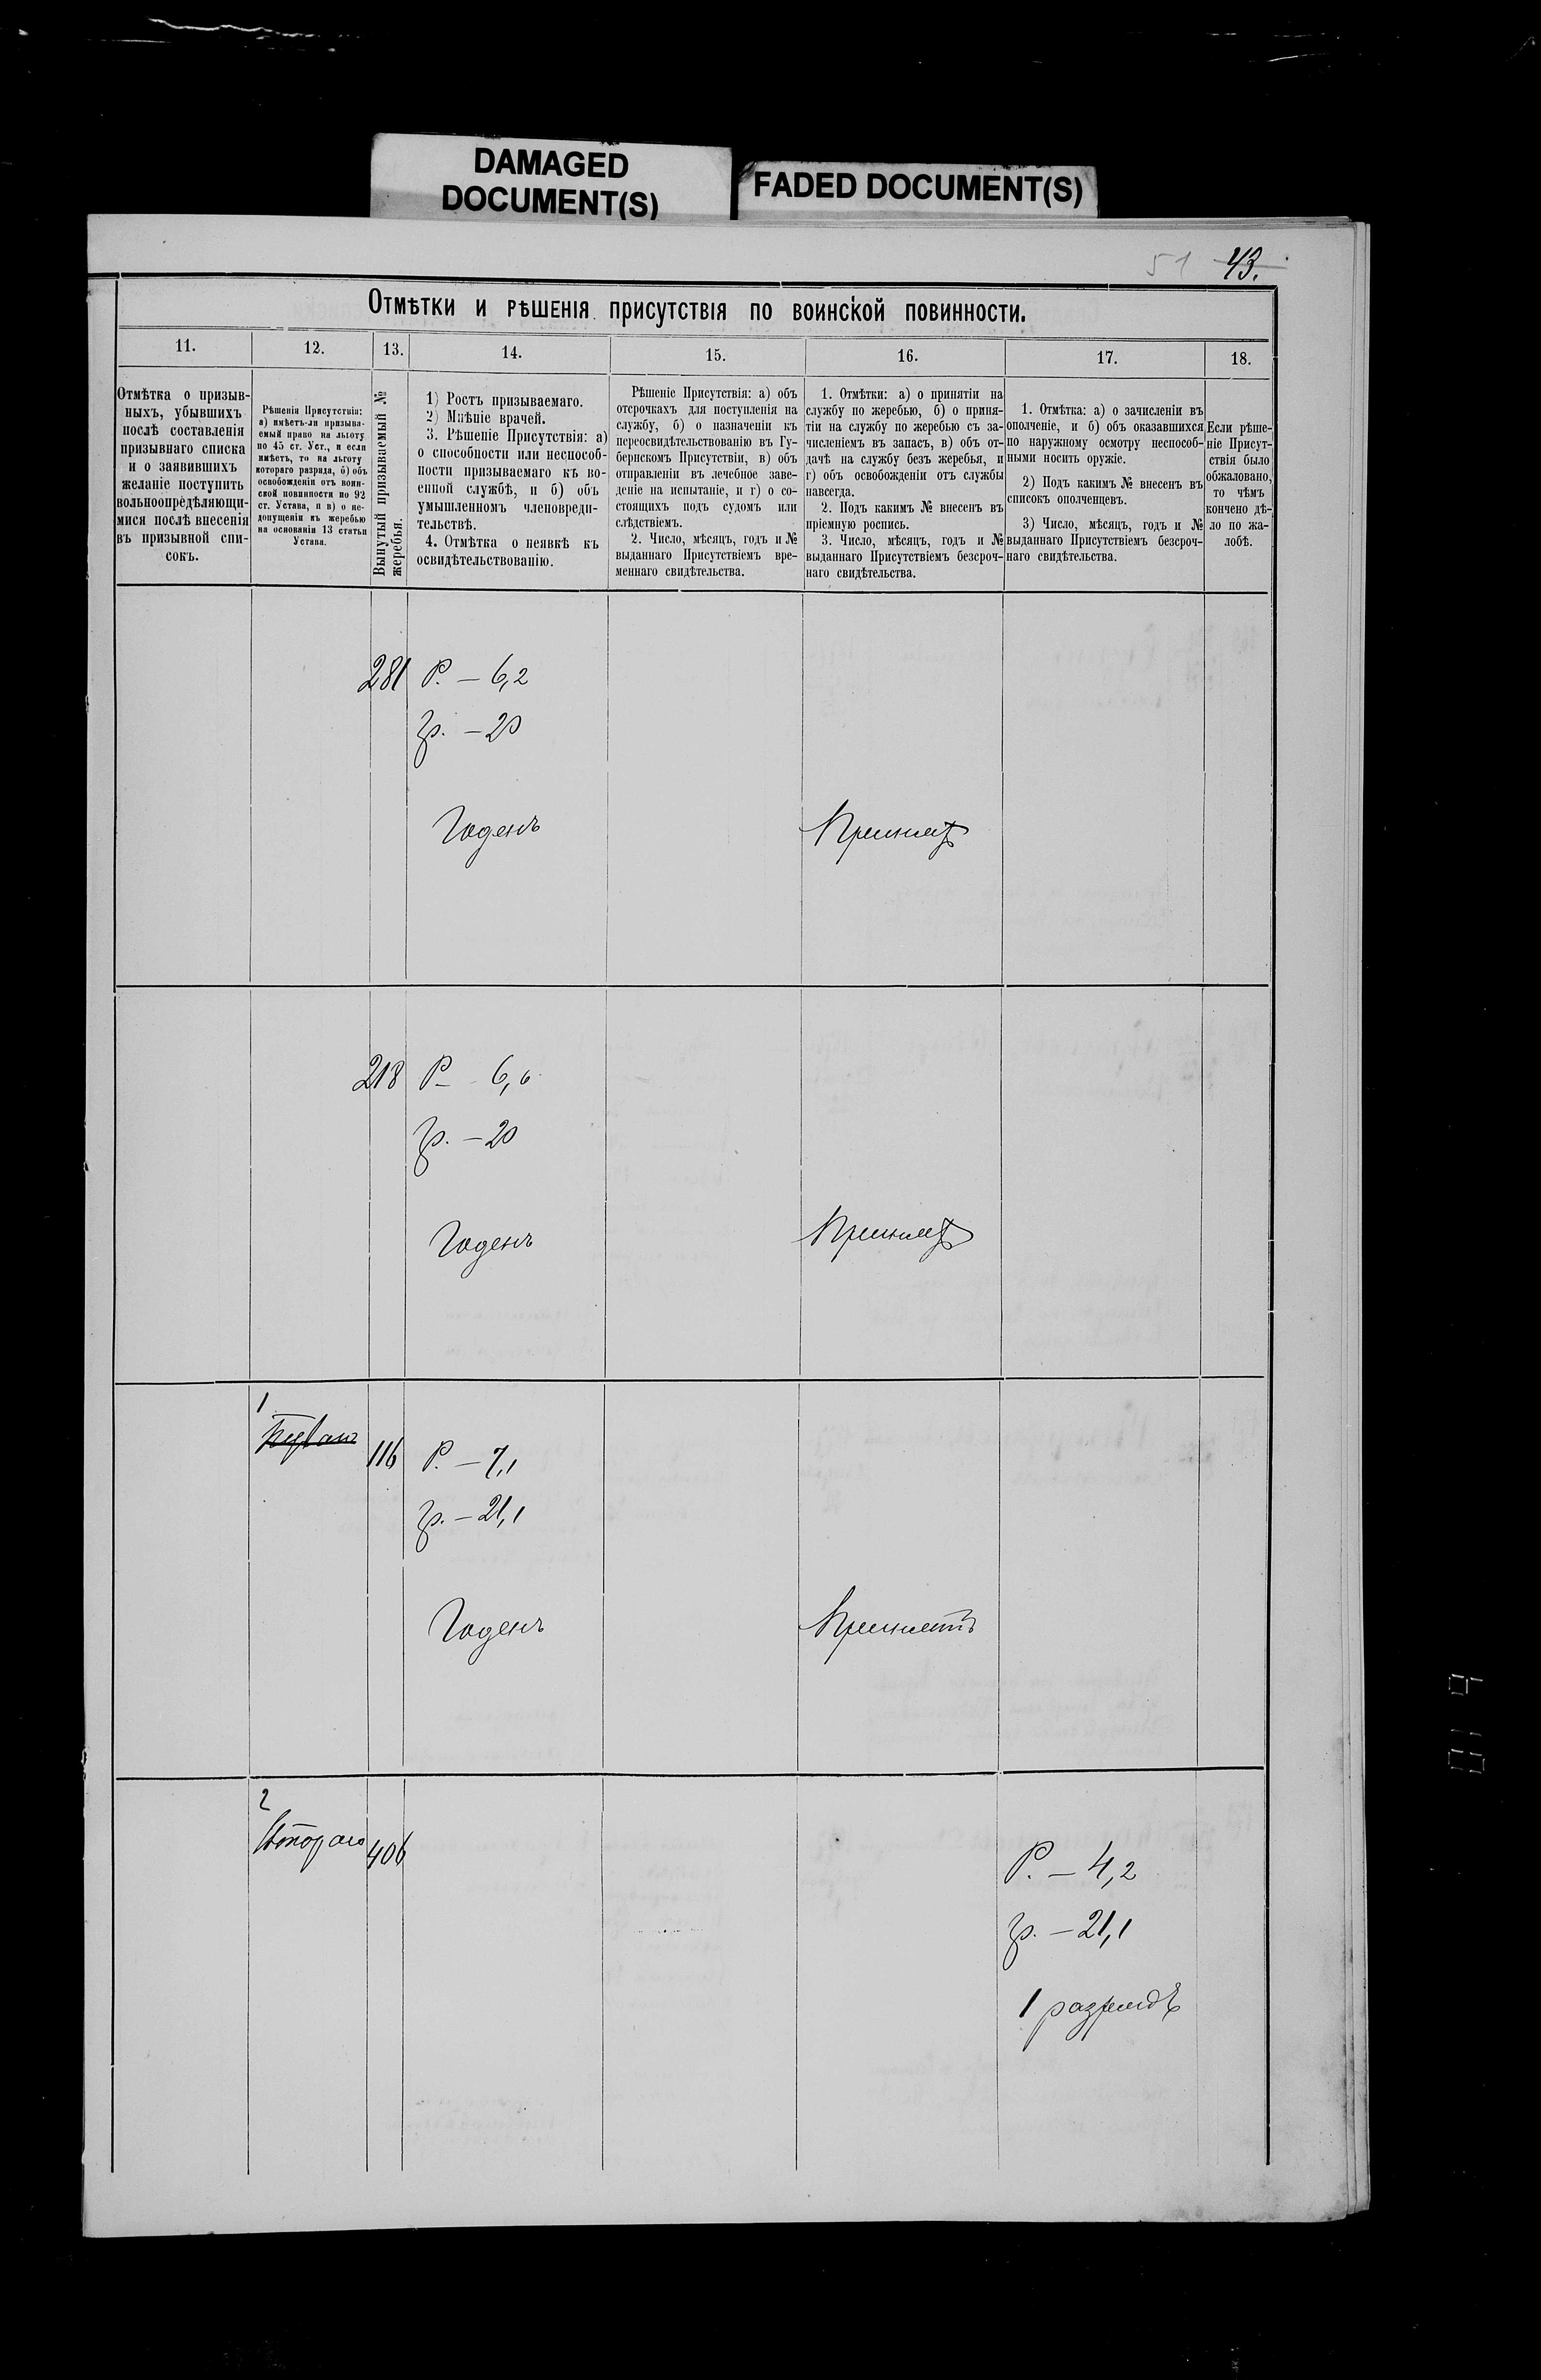 DAMAGED
DOCUMENT(S)
FADED DOCUMENT(S)
51 43.
Отмѣтки и рѣшенія присутствія по воинской повинности.
11.
12.
13.
14.
15.
16.
17.
18.
Отмѣтка о призыв-
ныхъ, убывшихъ
послѣ составленія
призывнаго списка
и о заявившихъ
желаніе поступить
вольноопредѣляющи-
мися послѣ внесенія
въ призывной спи-
сокъ.
Рѣшенія Присутствія:
а) имѣетъ-ли призыва-
емый право на льготу
по 45 ст. Уст., и если
имѣетъ, то на льготу
котораго разряда, б) объ
освобожденіи отъ воин-
ской повинности по 92
ст. Устава, и в) о не-
допущеніи къ жеребью
на основаніи 13 статьи
Устава.
Вынутый призываемый №
жеребья.
1) Ростъ призываемаго.
2) Мнѣніе врачей.
3. Рѣшеніе Присутствія: а)
о способности или неспособ-
ности призываемаго къ во-
енной службѣ, и б) объ
умышленномъ членовреди-
тельствѣ.
4. Отмѣтка о неявкѣ къ
освидѣтельствованію.
Рѣшеніе Присутствія: а) объ
отсрочкахъ для поступленія на
службу, б) о назначеніи къ
переосвидѣтельствованію въ Гу-
бернскомъ Присутствіи, в) объ
отправленіи въ лечебное заве-
деніе на испытаніе, и г) о со-
стоящихъ подъ судомъ или
слѣдствіемъ.
2. Число, мѣсяцъ, годъ и №
выданнаго Присутствіемъ вре-
меннаго свидѣтельства.
1. Отмѣтки: а) о принятіи на
службу по жеребью, б) о приня-
тіи на службу по жеребью съ за-
численіемъ въ запасъ, в) объ от-
дачѣ на службу безъ жеребья, и
г) объ освобожденіи отъ службы
навсегда.
2. Подъ какимъ № внесенъ въ
пріемную роспись.
3. Число, мѣсяцъ, годъ и №
выданнаго Присутствіемъ безсроч-
наго свидѣтельства.
1. Отмѣтка: а) о зачисленіи въ
ополченіе, и б) объ оказавшихся
по наружному осмотру неспособ-
ными носить оружіе.
2) Подъ какимъ № внесенъ въ
списокъ ополченцевъ.
3) Число, мѣсяцъ, годъ и №
выданнаго Присутствіемъ безсроч-
наго свидѣтельства.
Если рѣше-
ніе Присут-
ствія было
обжаловано,
то чѣмъ
кончено дѣ-
ло по жа-
лобѣ.
281 Р. — 6,2
гр. — 20
Годенъ Принятъ
218 Р — 6,6
гр. — 20
Годенъ Принятъ
1
116 Р. — 7,1
гр. — 21,1
Годенъ Принятъ
2
Втораго 406
Р. — 4,2
гр. — 21,1
1 разрядъ
019